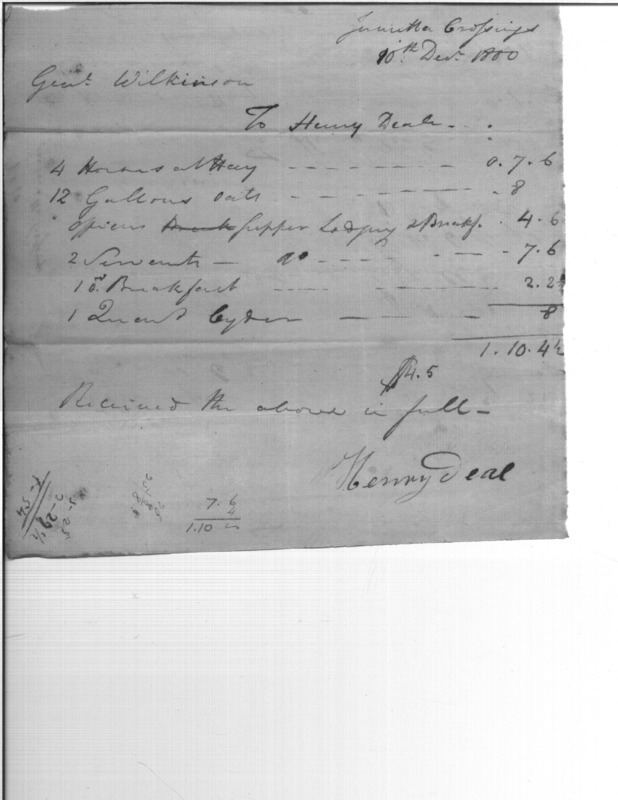 Juniatta Crossings
10th Decr. 1800
Genl. Wilkinson
To Henry Deale
4 Horses at Hay 0. 7. 6
12 Gallons oats 8
Supper Lodging & Breakf. 4. 6
2 Servants do 7. 6
1 do. Breakfast 2. 2½
1 Quart Cyder 8
1. 10. 4½
$4. 5
Received the above in full
Henry Deal
7. 6
4
1. 10